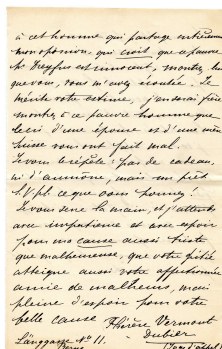 à cet homme qui partage entièrement
mon opinion, qui croit que ce pauvre
Mr Dreyfus est innocent, montrez lui
que vous, vous m'avez écoutée. Je
mérite votre estime, j'en serai fière
montrez à ce pauvre homme que
les cris d'une épouse et d'une mère
suisse vous ont fait mal.
Je vous le répète! pas de cadeau,
ni d'aumône, mais un prêt
S.V.pl. ce que vous pourrez!
Je vous serre la main, et j'attends
avec impatience et avec espoir
pour ma cause aussi triste
que malheureuse, que votre pitié
atteigne aussi votre affectionnée
amie de malheurs, mais
pleine d'espoir pour votre
belle cause
Vermont
Länggasse No 11.
Berne